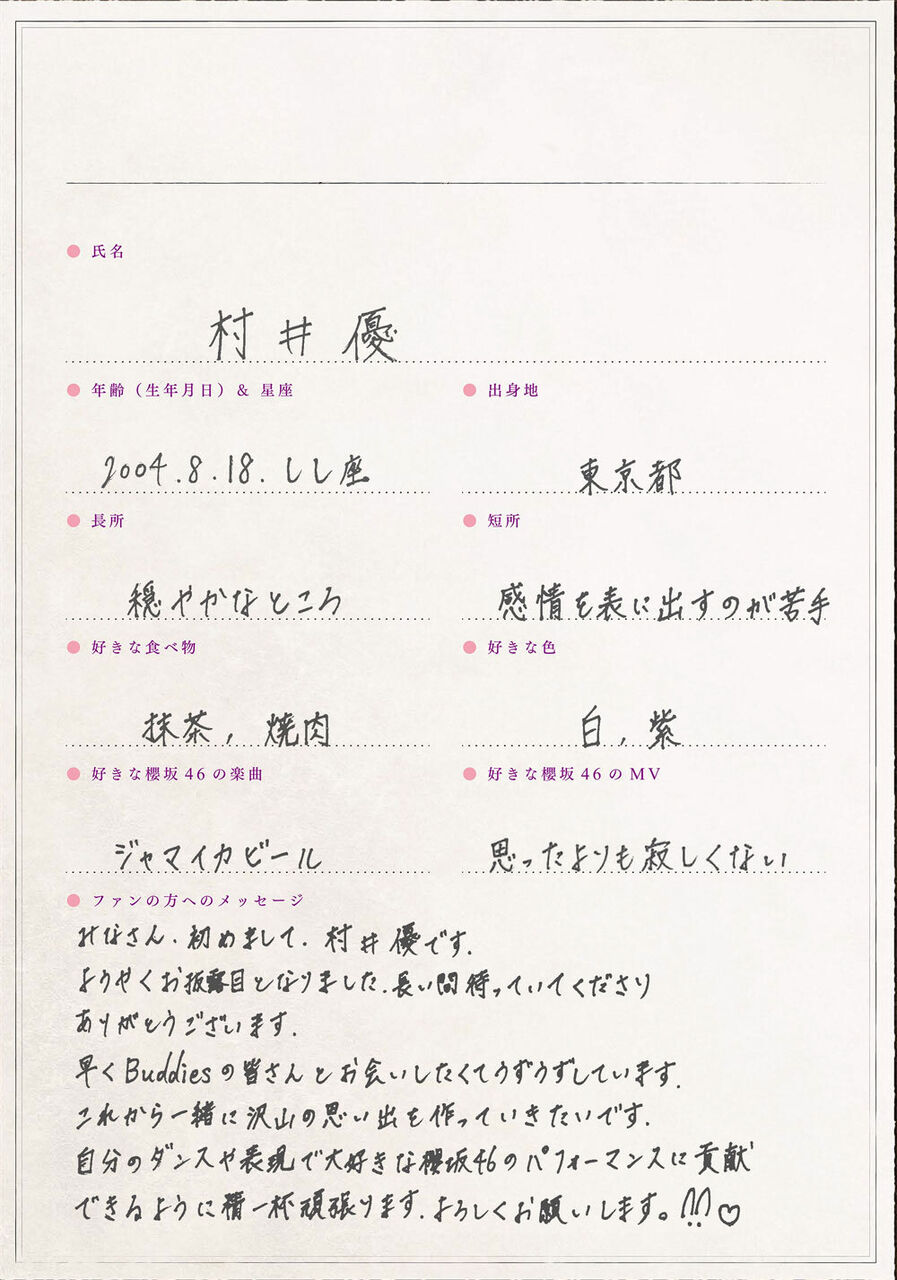 氏名
村井優
年齢（生年月日）& 星座
出身地
2004.8.18.しし座
東京都
長所
短所
穏やかなところ
感情を表に出すのが苦手
好きな食べ物
好きな色
抹茶，焼肉
白，紫
好きな櫻坂46の楽曲
好きな櫻坂46のMV
ジャマイカビール
思ったよりも寂しくない
ファンの方へのメッセージ
みなさん、初めまして、村井優です。
ようやくお披露目となりました。長い間待っていてくださり
ありがとうございます。
早くBuddiesの皆さんとお会いしたくてうずうずしています。
これから一緒に沢山の思い出を作っていきたいです。
自分のダンスや表現で大好きな櫻坂46のパフォーマンスに貢献
できるように精一杯頑張ります。よろしくお願いします。!!!♡